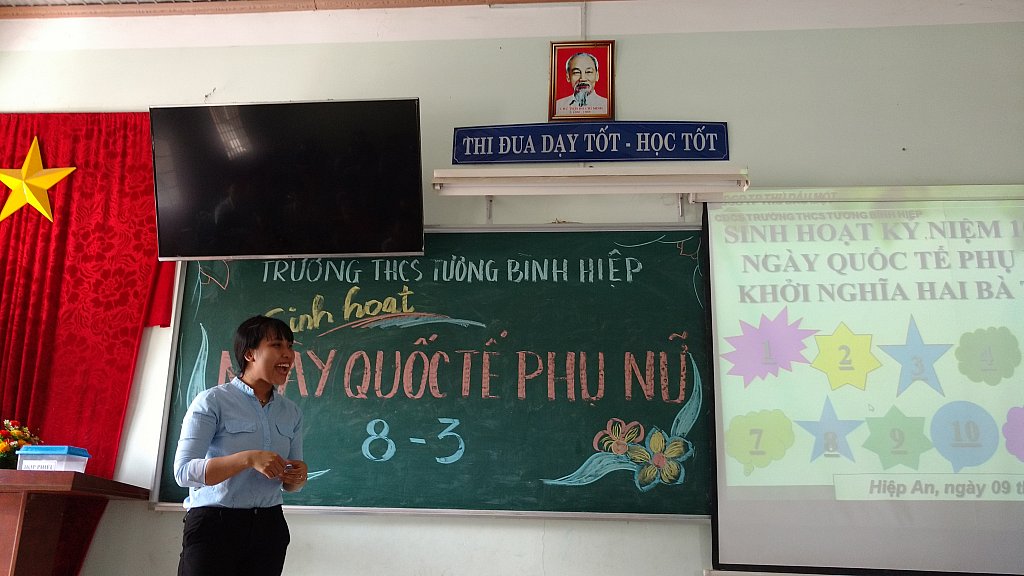 THI ĐUA DẠY TỐT - HỌC TỐT
TRƯỜNG THCS TƯƠNG BÌNH HIỆP
Sinh hoạt
NGÀY QUỐC TẾ PHỤ NỮ
8-3
CĐCS TRƯỜNG THCS TƯƠNG BÌNH HIỆP
SINH HOẠT KỶ NIỆM
NGÀY QUỐC TẾ PHỤ
KHỞI NGHĨA HAI BÀ
1
2
3
4
7
8
9
10
Hiệp An, ngày 09